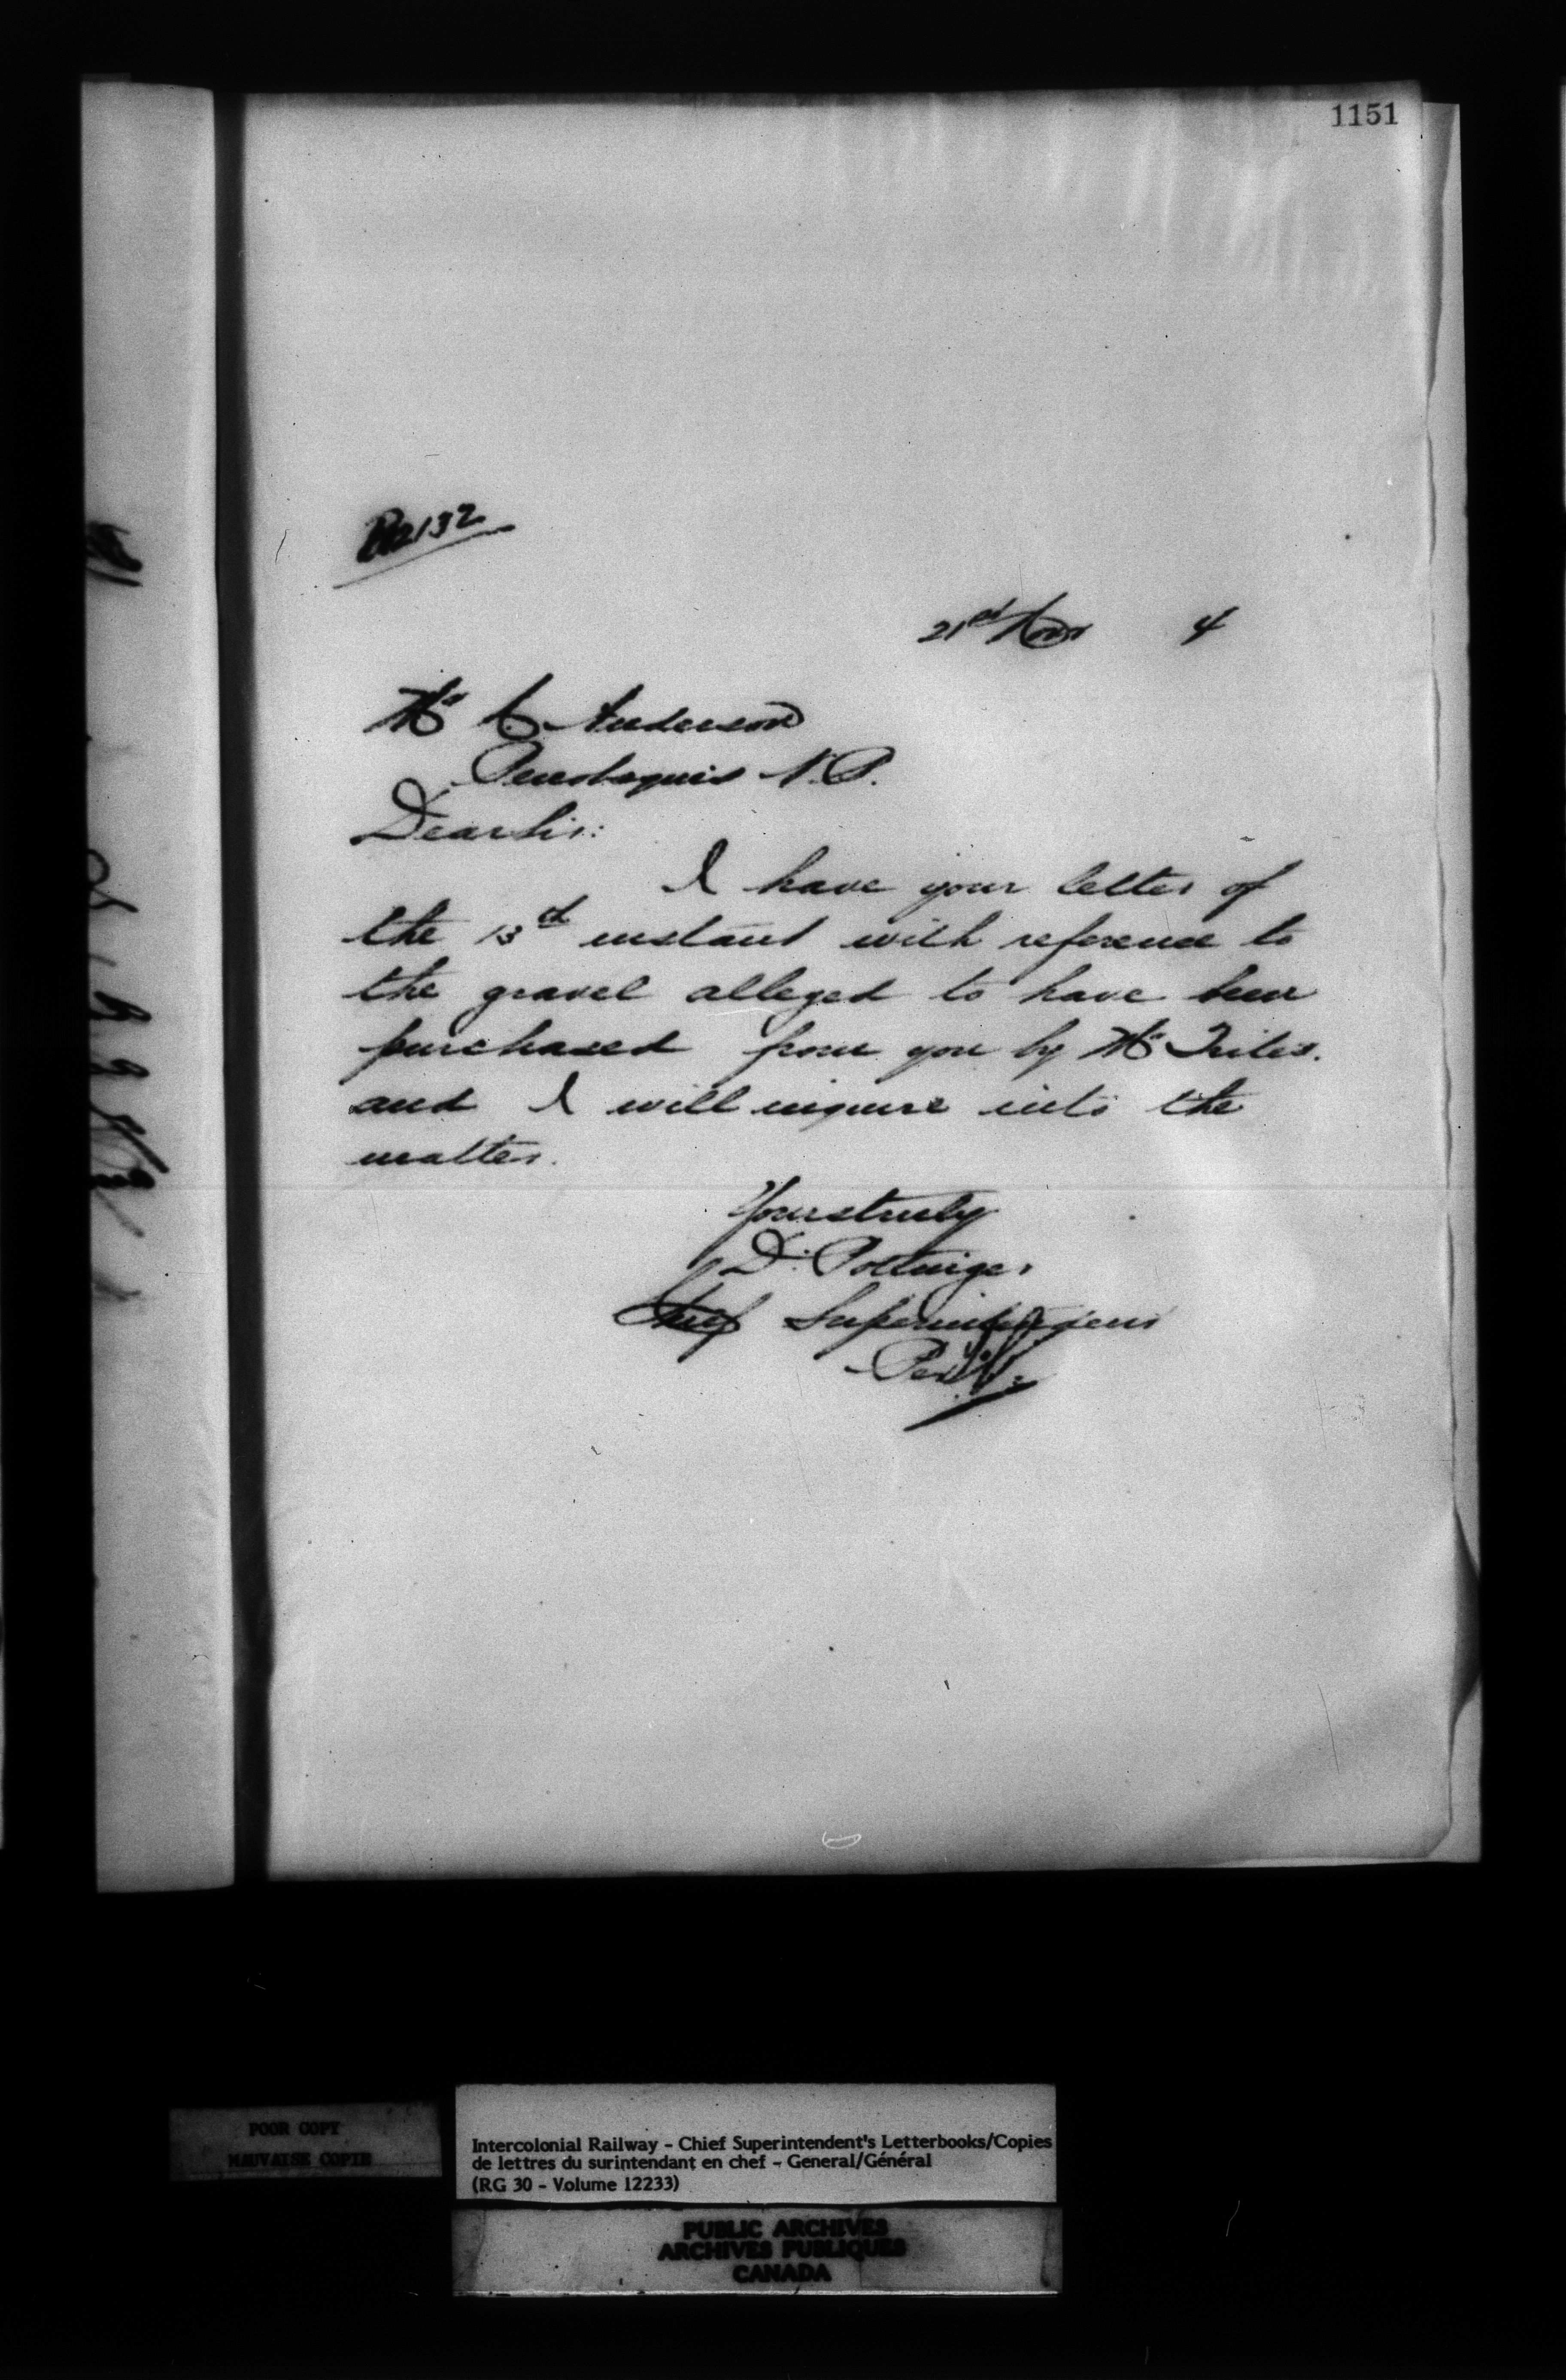 1151
2132
21st Nov 4
Mr A. Anderson
Penobsquis N.B.
Dear Sir:
I have your letter of
the 13th instant with reference to
the gravel alleged to have been
purchased from you by Mr Trites.
and I will inquire into the
matter.
Yours truly
D. Pottinger
Chief Superintendent
Per
POOR COPY
MAUVAISE COPIE
Intercolonial Railway - Chief Superintendent's Letterbooks/Copies
de lettres du surintendant en chef - General/Général
(RG 30 - Volume 12233)
PUBLIC ARCHIVES
ARCHIVES PUBLIQUES
CANADA